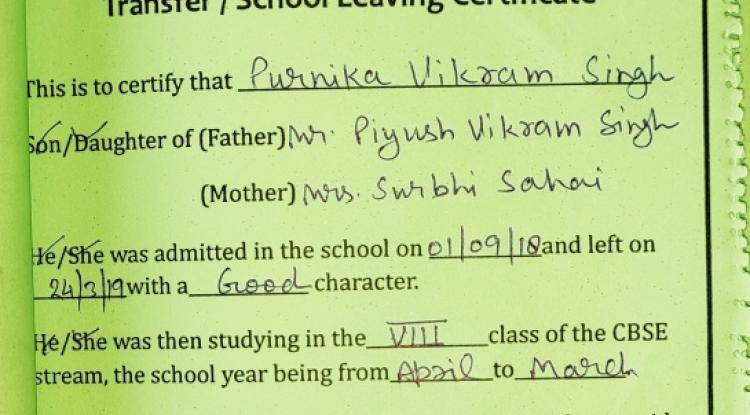 Transfer / School Leaving Certificate
This is to certify that Purnika Vikram Singh
Son/Daughter of (Father) Mr. Piyush Vikram Singh
(Mother) Mrs. Surbhi Sahai
He/She was admitted in the school on 01/09/18 and left on
24/3/19 with a Good character.
He/She was then studying in the VIII class of the CBSE
stream, the school year being from April to March